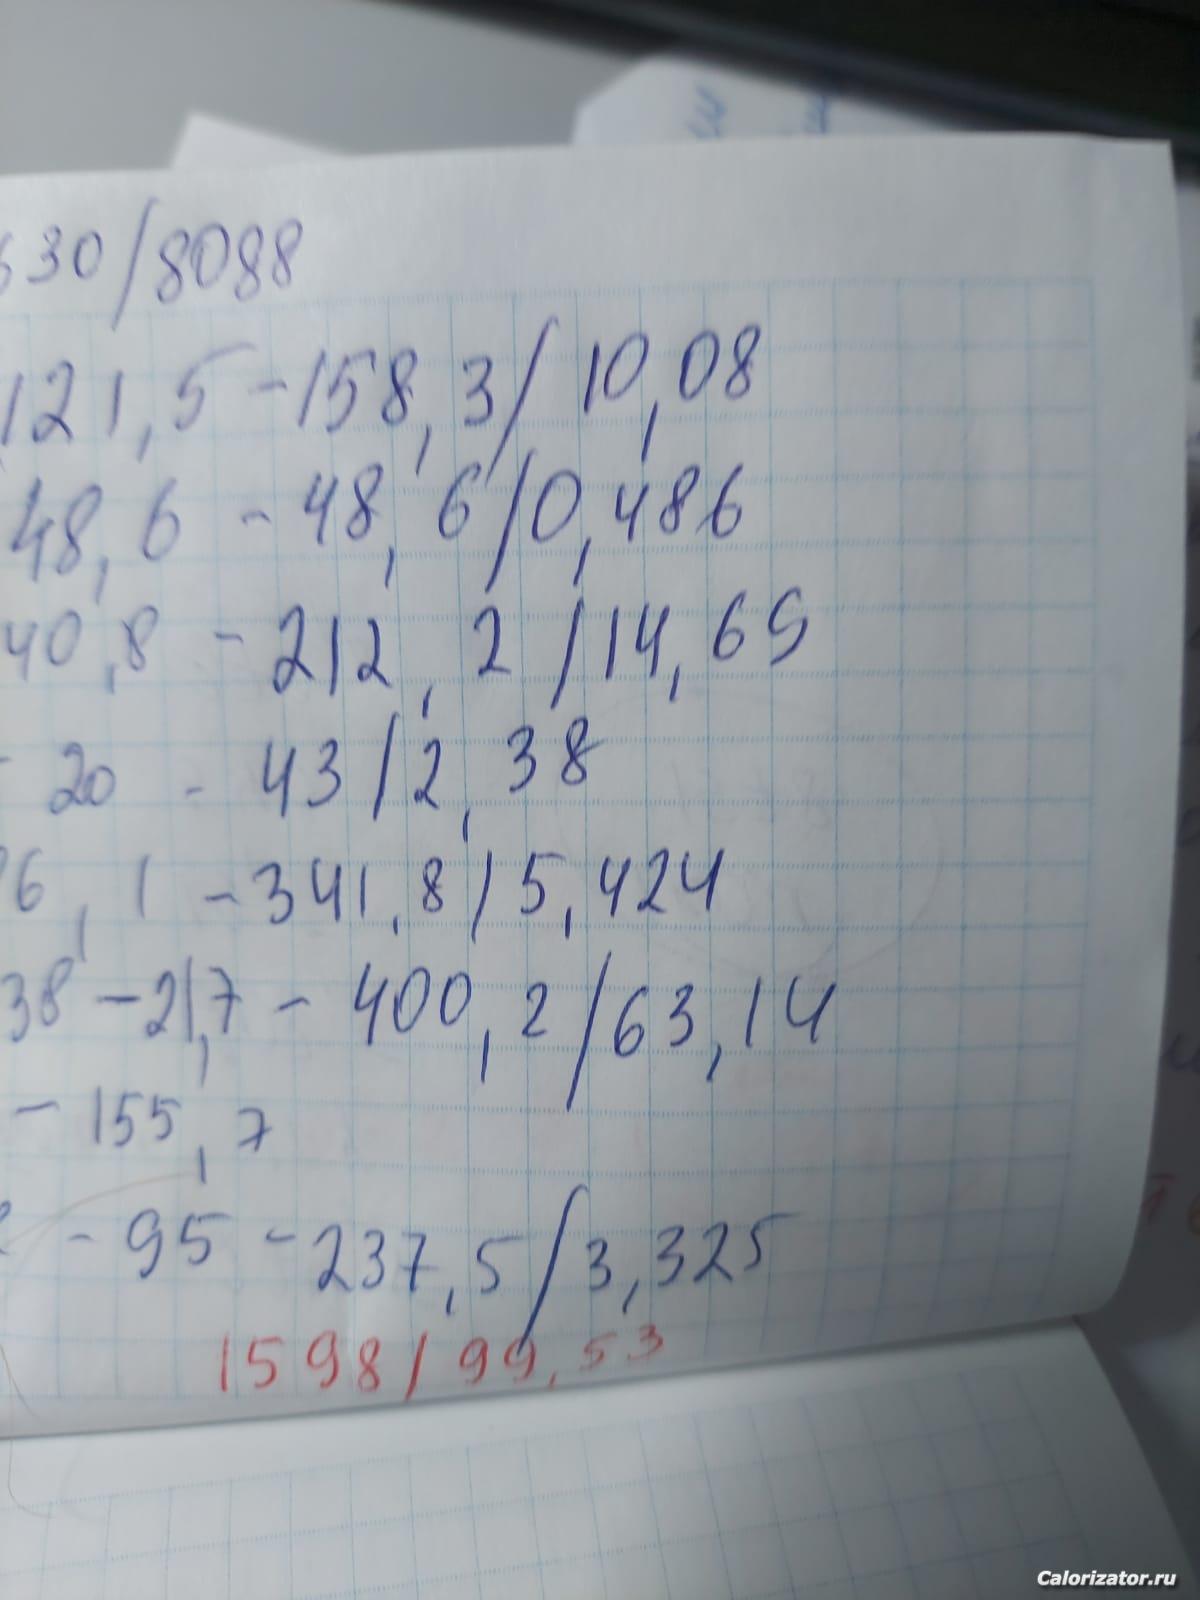 630/8088
121,5-158,3/10,08
48,6-48,6/0,486
40,8-212,2/14,65
- 20 - 43/2,38
6,1-341,8/5,424
38-21,7-400,2/63,14
-155,7
-95-237,5/3,325
1598/99,53
Calorizator.ru